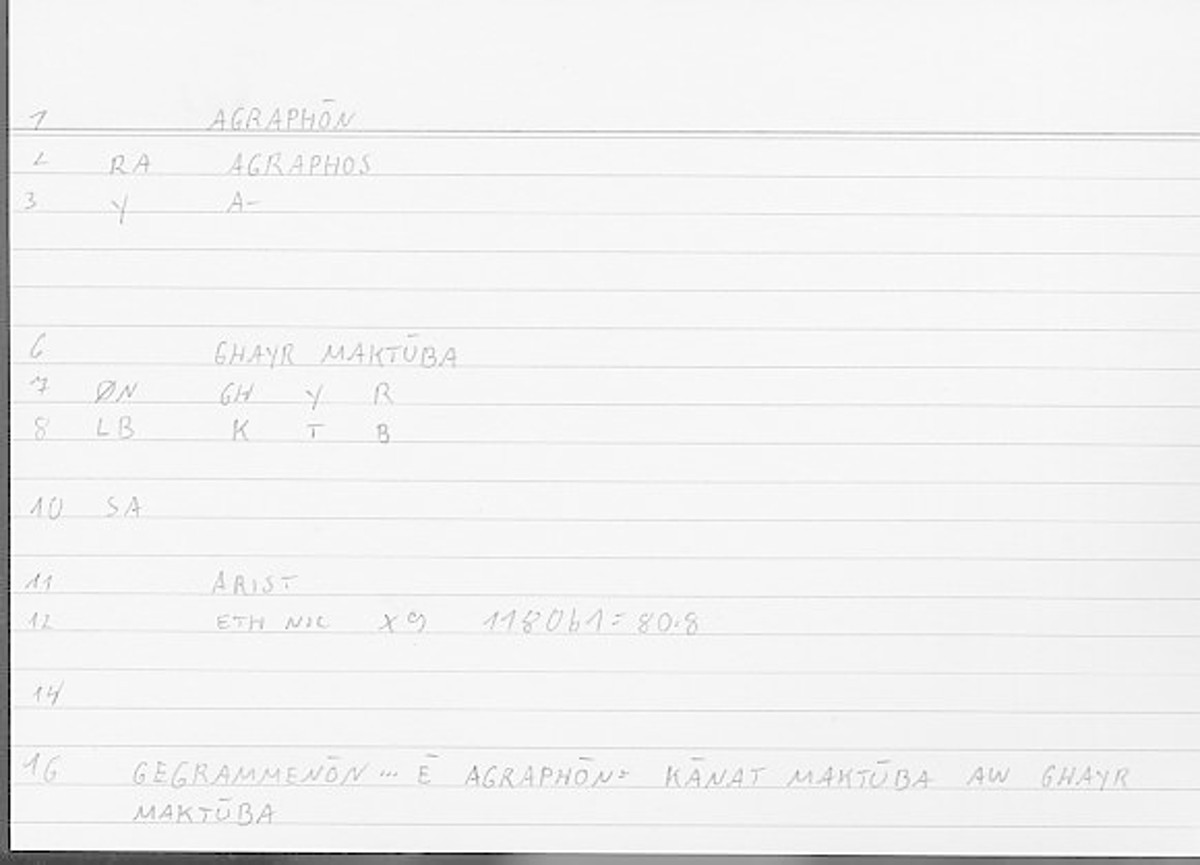 1 AGRAPHŌN
2 RA AGRAPHOS
3 Y A-
6 GHAYR MAKTŪBA
7 ØN GH Y R
8 LB K T B
10 SA
11 ARIST
12 ETH NIC X9 1180b1= 80.8
14
16 GEGRAMMENŌN ... Ē AGRAPHŌN= KĀNAT MAKTŪBA AW GHAYR
MAKTŪBA